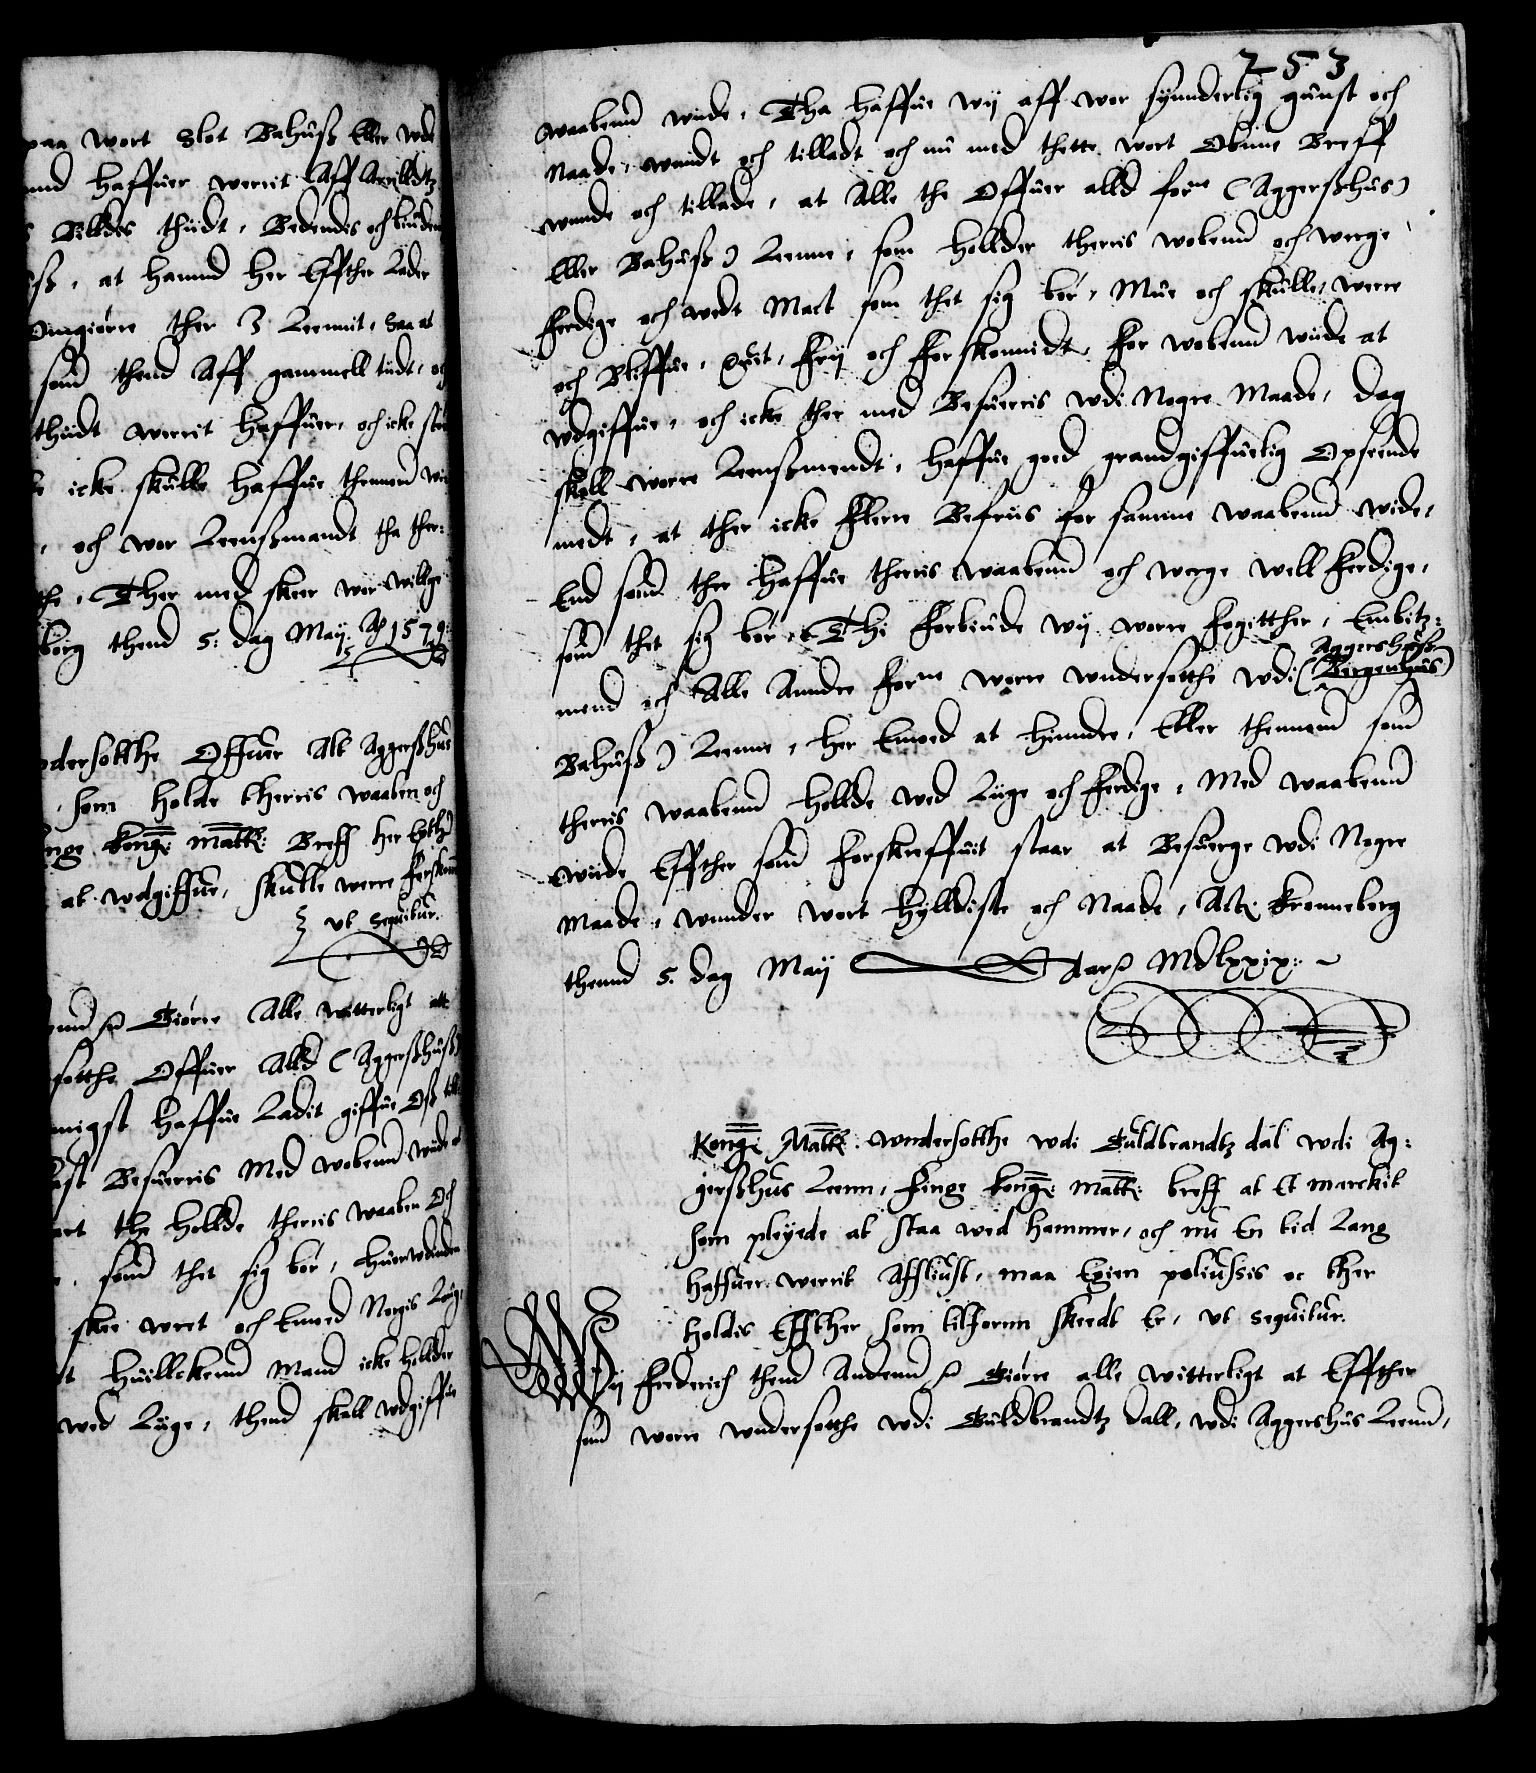 paa wort Slot Bahuß Eller wdi
haffuer werrit Aff Arrildtz
Billdes thiidt, Bedendis och biuden
at hannd her Effther Lader
Omgiørre ther I Leennit, Saa at
som thend Aff gammell tiidt, och
thiidt werrit haffuer, och icke
icke skulle haffue thennem
och wor Leenßmandt tha ther:
Ther med skeer wor willge
borg thend 5. dag Maij Aar 1579.
wndersotthe Offuer Alt Aggerßhus
som holde therris waaben och
finge kong: Matt: Breff her Effther
at wdgiffue, skulle werre forskaan
vt sequitur.
Giørre Alle witterligt att
sotthe Offuer Alld (Aggerßhuß)
haffue Ladit giffue Oß till
Besuerris Med wobenn wiide
the hollde therris waaben Och
som thet sig bør, huerwdinden
skee wret och Emod Norgis Lug,
huillckenn Mand icke hollder
wed Luge, thend skall wdgiffue
253
waabenn wiide, Tha haffue wij aff wor synnderlig gunst och
Naade, wundt och tilladt och nu med thette wort Obnne Breff
wnnde och tillade, at Alle the Offuer alld forne (Aggerßhus)
Eller Bahuß) Leenne, som hollder therris wobenn och werge
ferdige och wedt Mact som thet sig bør, Mue och skulle, werre
och Bliffue, Quit, frij och forskonnidt, for wobenn wiide at
wdgiffue, och icke ther med Besuerris wdi Nogre Maade, dog
skall worre Leenßmendt, haffue goed grandgiffuelig Opseende
medt, at ther icke flerre Befriis for samme waabenn wide,
End som ther haffue therris waabenn och werge well ferdige,
som thet sig bør, Thi forbiude wij worre fogitther, Embitz:
mend och Alle Anndre forne worre wndersotthe wdi (Bergenhus)
Aggershuß
Bahuß) Leenne, her Emod at hinndre, Eller thennem som
therris waabenn hollde wed Luge och ferdige, Med waabenn
wiide Effther som forskreffuit staar at Besuerge wdi Nogre
Maade, wnnder wort hylldiste och Naade, Act: Kronneborg
thennd 5. dag Maij Aars MDlxxix:
Kong: Matt: wndersotthe wdi Guldbrandtz dal wdi Ag:
gerßhus Leen, finge kong: Matt: breff at Et marckit
som pleyede at staa wed hammer, och nu En tid Lang
haffuer werrit Affliust, maa Igien poliussis oc ther
holdis Effther som tilfornn skeedt Er, vt sequitur.
Wij Frederich thend Andenn Giørre alle witterligt at Effther
som worre wndersotthe wdi Guldbrandtz dall, wdi Aggershus Leenn,